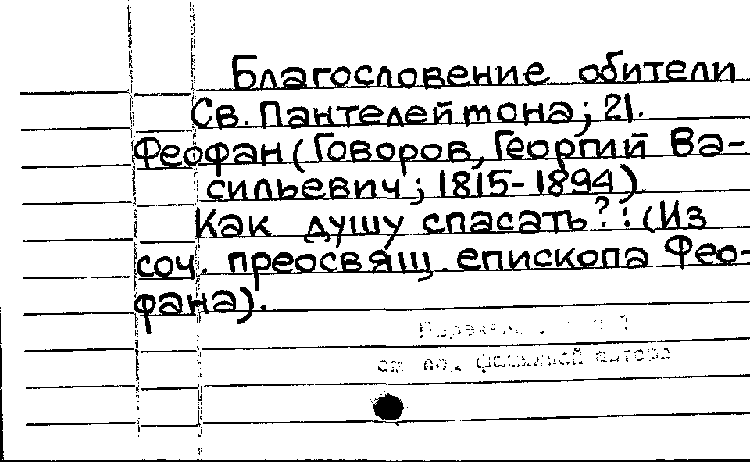 Благословение обители
Св. Пантелеймона; 21.
Феофан (Говоров, Георгий Ва-
сильевич; 1815-1894)
Как душу спасать?: (Из
соч. преосвящ. епископа Фео-
фана).
см на. фамилией автора